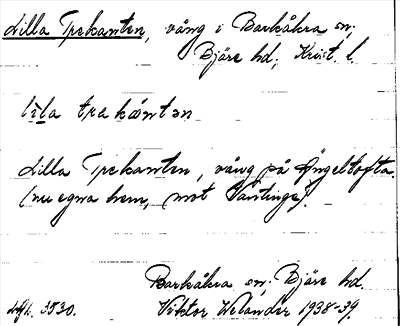 Lilla Trekanten, vång i Barkåkra sn;
Bjäre hd; Krist. l.
lìla trekántən
Lilla Trekanten, vång på Ängeltofta.
(nu egna hem, mot Vantinge).
Barkåkra sn; Bjäre hd.
Viktor Welander 1938-39.
3530.